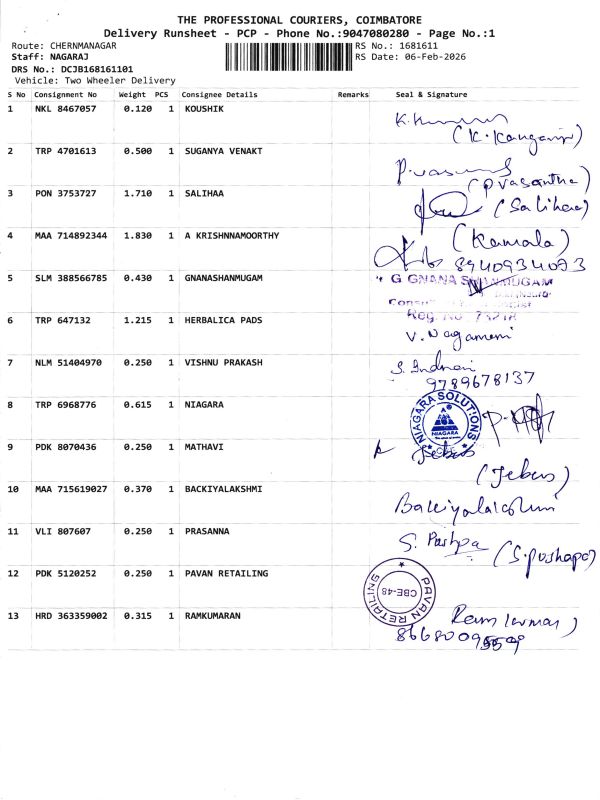 THE PROFESSIONAL COURIERS, COIMBATORE
Delivery Runsheet - PCP - Phone No.:9047080280 - Page No.:1
Route: CHERNMANAGAR
RS No.: 1681611
Staff: NAGARAJ
RS Date: 06-Feb-2026
DRS No.: DCJB168161101
Vehicle: Two Wheeler Delivery
S No Consignment No Weight PCS Consignee Details Remarks Seal & Signature
1 NKL 8467057 0.120 1 KOUSHIK
2 TRP 4701613 0.500 1 SUGANYA VENAKT
(Pvasantha)
3 PON 3753727 1.710 1 SALIHAA
(Salihaa)
4 MAA 714892344 1.830 1 A KRISHNNAMOORTHY
(Kamala)
8940934073
5 SLM 388566785 0.430 1 GNANASHANMUGAM
G GNANA SHANMUGAM
Reg. No 73218
6 TRP 647132 1.215 1 HERBALICA PADS
V. Nagamani
7 NLM 51404970 0.250 1 VISHNU PRAKASH
S. Indrani
9789678137
8 TRP 6968776 0.615 1 NIAGARA
NIAGARA SOLUTIONS
NIAGARA
9 PDK 8070436 0.250 1 MATHAVI
Jebus
(Jebus)
10 MAA 715619027 0.370 1 BACKIYALAKSHMI
Backiyalakshmi
11 VLI 807607 0.250 1 PRASANNA
S. Pushpa
(S. pushapa)
12 PDK 5120252 0.250 1 PAVAN RETAILING
PAVAN RETAILING
CBE-48
13 HRD 363359002 0.315 1 RAMKUMARAN